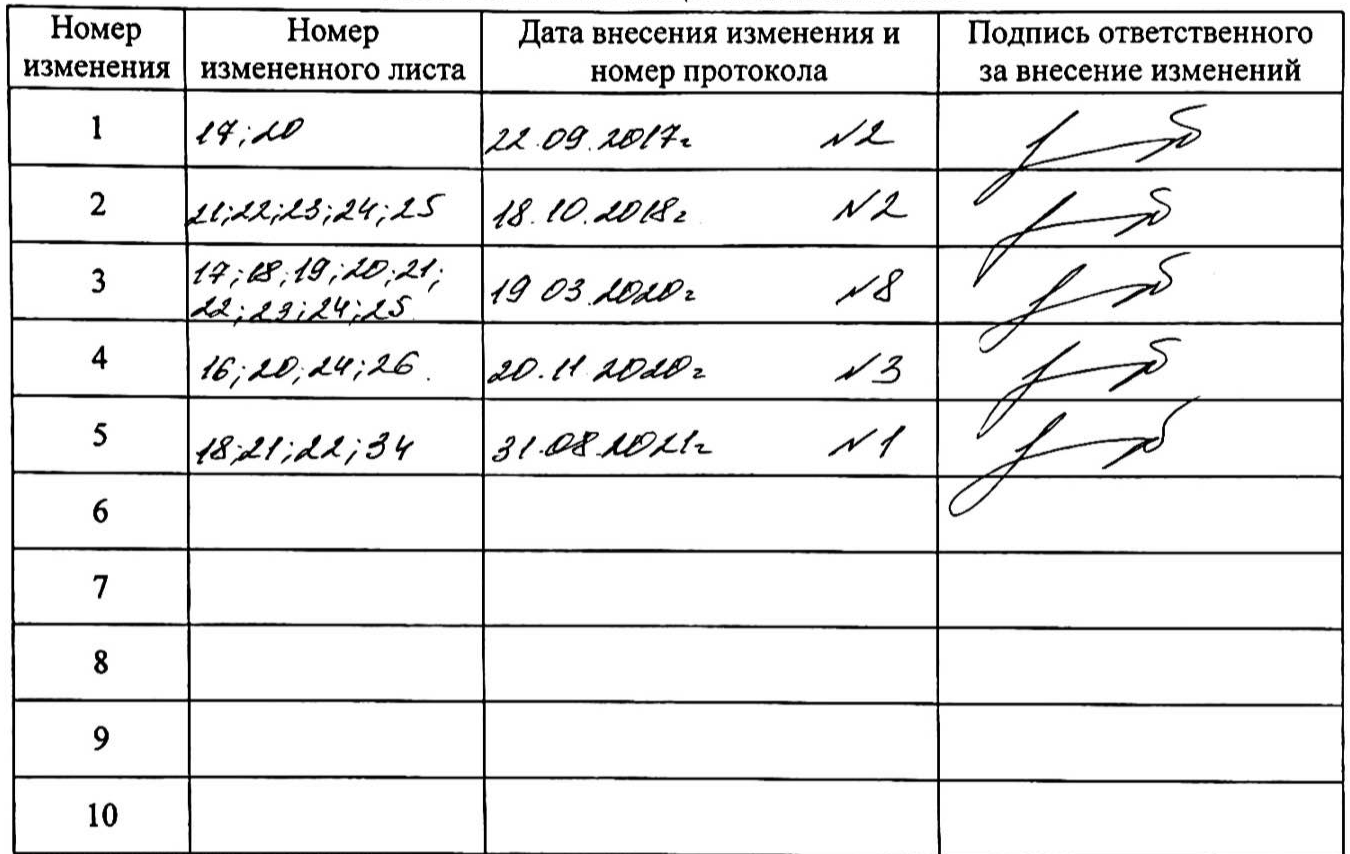 Номер изменения Номер измененного листа Дата внесения изменения и номер протокола Подпись ответственного за внесение изменений
1 17;20 22.09.2017г N2
2 21;22;23;24;25 18.10.2018г N2
3 17;18;19;20;21; 19 03.2020г N8
22;23;24;25
4 16;20;24;26. 20.11 2020г N3
5 18;21;22;34 31.08.2021г N1
6
7
8
9
10